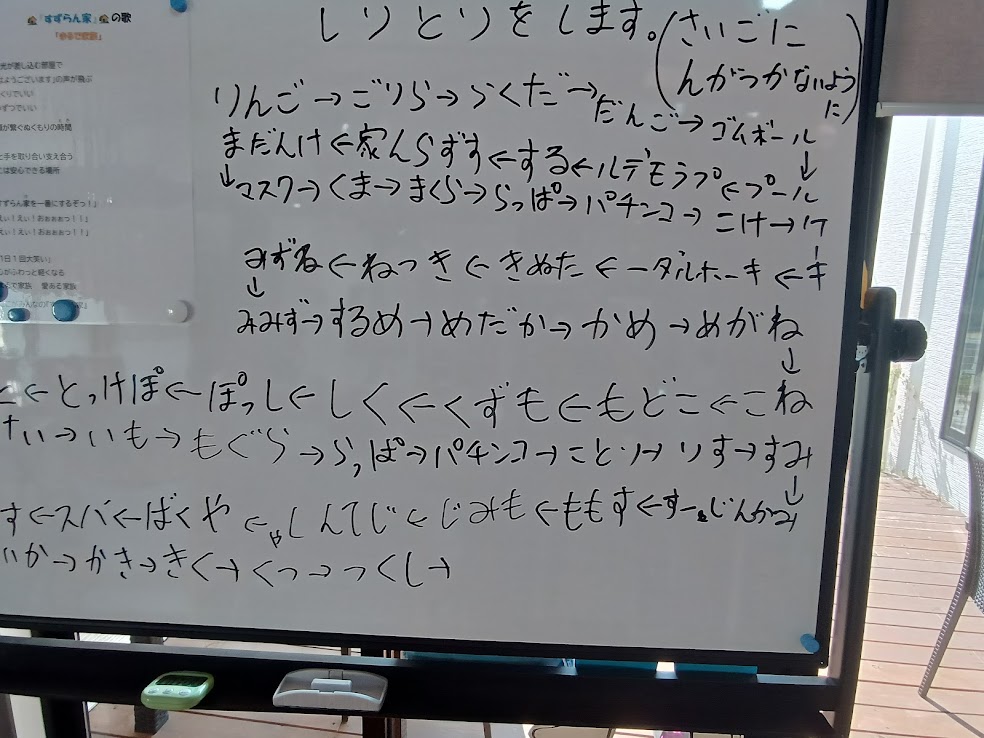 「すずらん家」の歌
光が差し込む部屋で
はようございます」の声が飛ぶ
くりでいい
ずつでいい
が繋ぐぬくもりの時間
と手を取り合い支え合う
は安心できる場所
ずらん家を一番にするぞっ！」
えい！えい！おぉぉぉっ！！」
1日1回大笑い」
がふわっと軽くなる
で家族 愛ある家族
しりとりをします。(さいごに
んがつかないよう
に)
りんご→ごりら→らくだ→だんご→ゴムボール
↓
まだんけ←家んらずす←する←ルデモラプ←プール
↓マスク→くま→まくら→らっぱ→パチンコ→こけ→ケ
みずね←ねっき←きぬた←ータルホーキ←キ
↓
みみず→するめ→めだか→かめ→めがね
↓
こ←とっけぽ←ぽっし←しく←くずも←もどこ←こね
けい→いも→もぐら→らっぱ→パチンコ→ことり→りす→すみ
↓
す←スバ←ばくや←ゃしんてじ←じみも←ももす←すーぁじんかみ
いか→かき→きく→くつ→つくし→